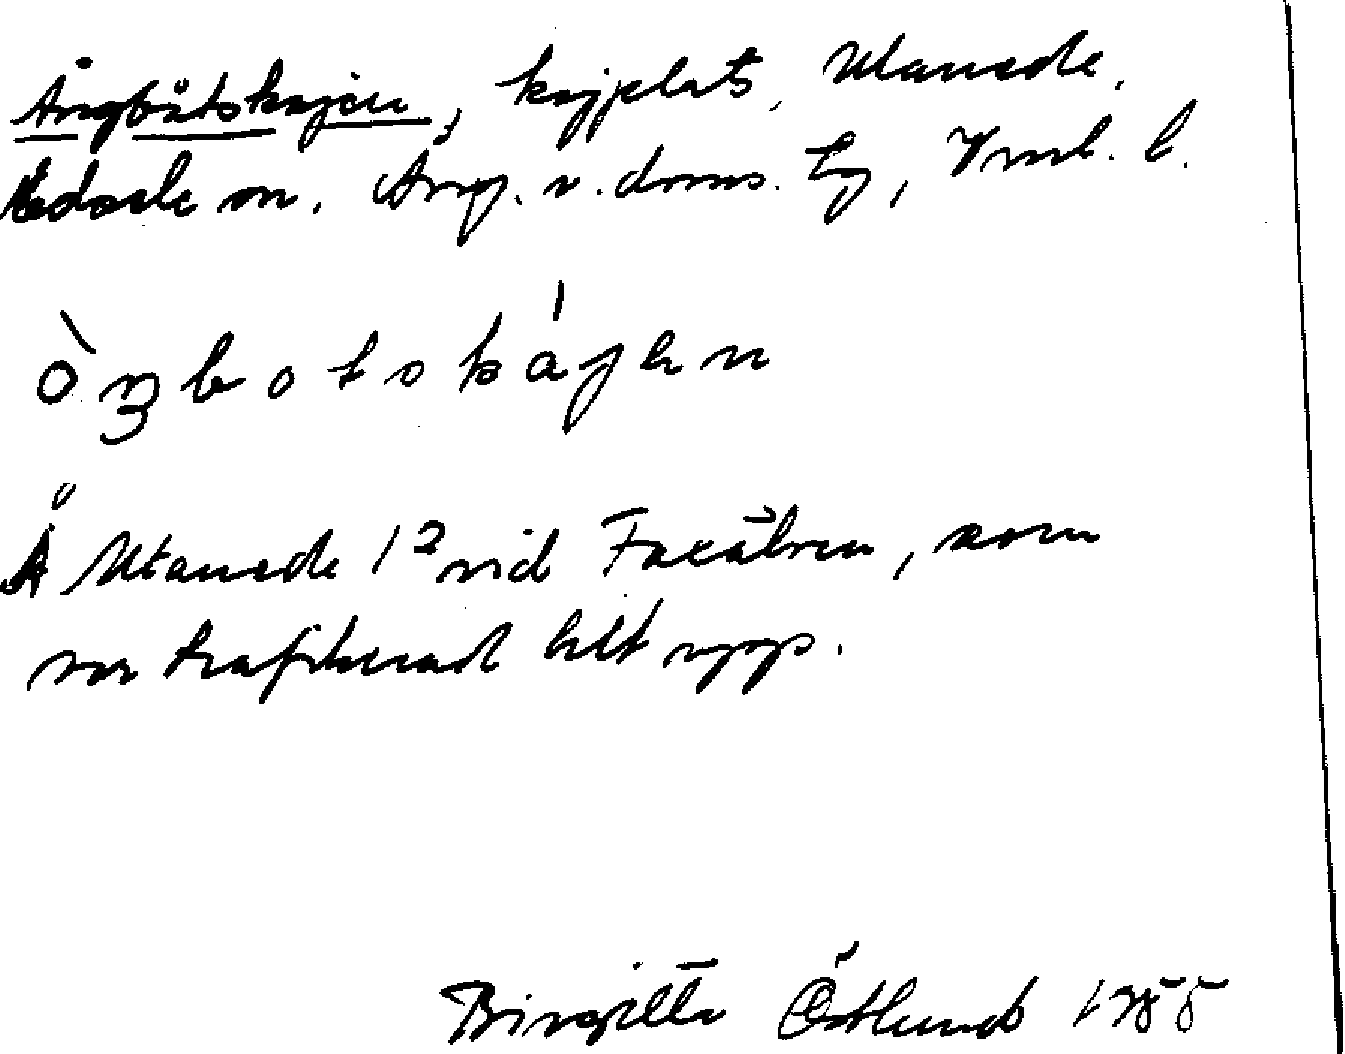 Ångbåtskajen, kajplats, Utanede,
Edsele sn. Ång. v. doms. tg, Vnl. l.
òŋbotskájen
Å Utanede 1² vid Faxälven, som
var trafikerad hitt upp.
Birgitta Östlund 1955